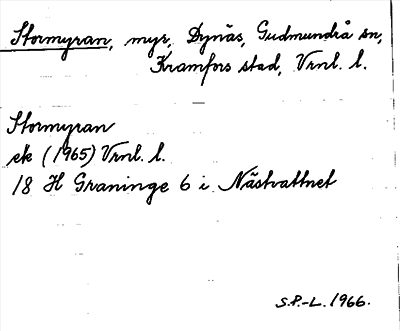 Stormyran, myr, Dynäs, Gudmundrå sn,
Kramfors stad, Vrnl. l.
Stormyran
ek (1965) Vrnl. l.
18 H Graninge 6 i Nästvattnet
S.P.-L. 1966.